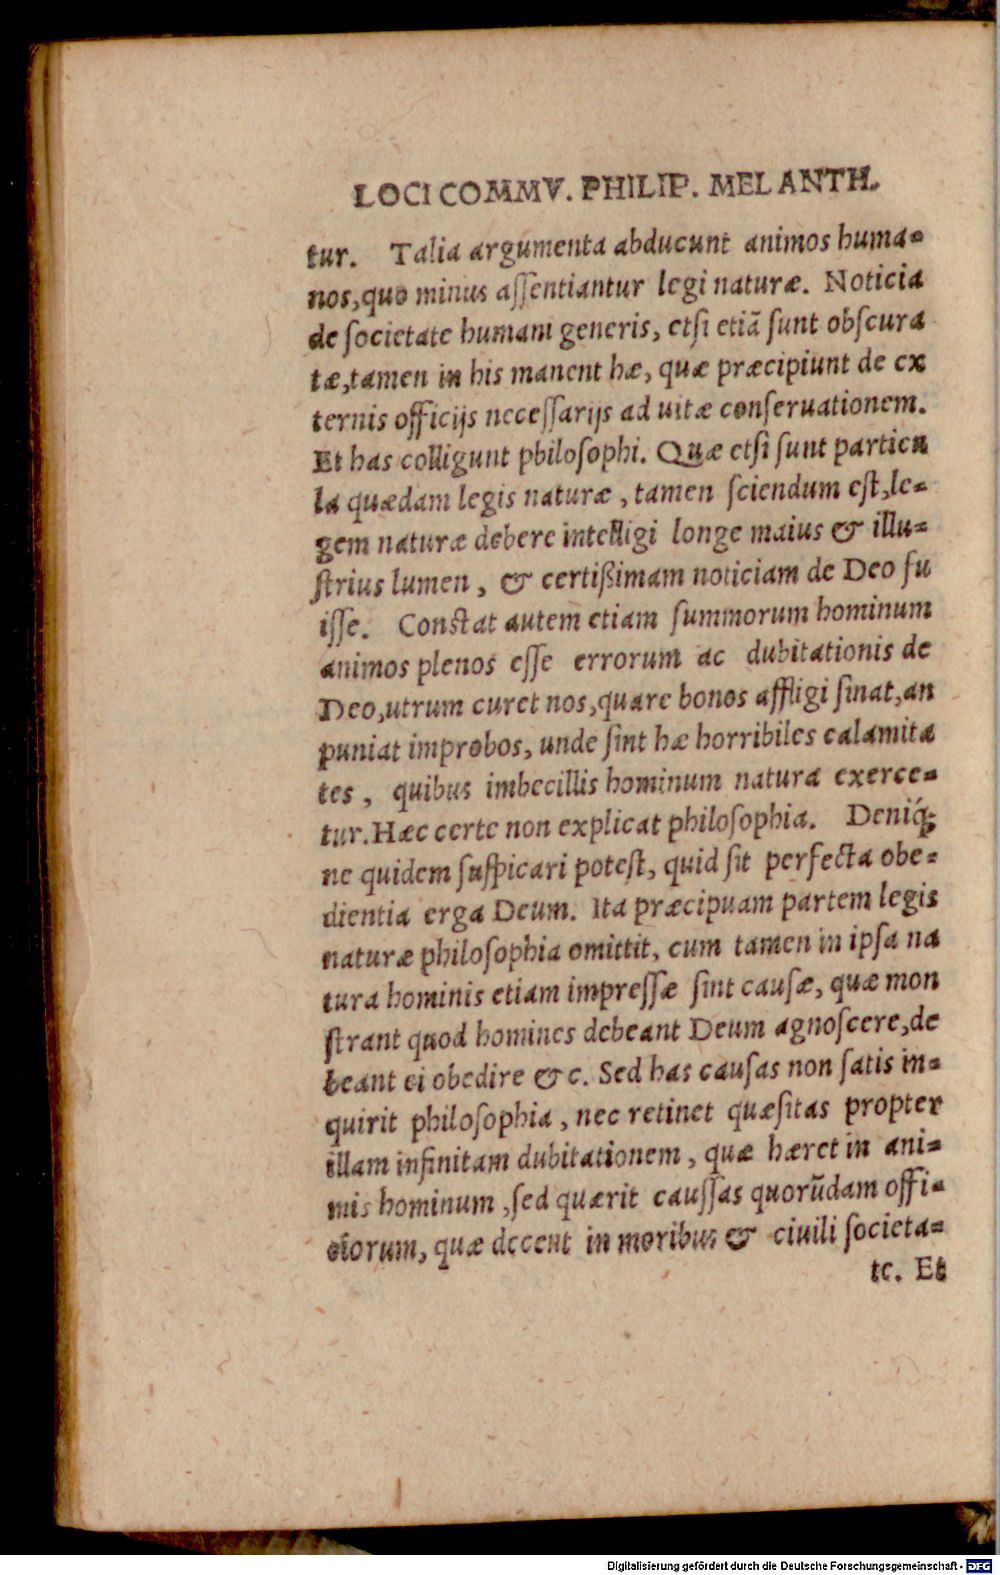 LOCI COMMV. PHILIP. MELANTH.
tur. Talia argumenta abducunt animos huma-
nos, quo minus aſſentiantur legi naturæ. Noticia
de ſocietate humani generis, etſi etiã ſunt obſcura
tæ, tamen in his manent hæ, quæ præcipiunt de ex
ternis officijs neceſſarijs ad uitæ conſeruationem.
Et has colligunt philoſophi. Quæ etſi ſunt particu
la quædam legis naturæ, tamen ſciendum eſt, le-
gem naturæ debere intelligi longe maius & illu-
ſtrius lumen, & certißimam noticiam de Deo fu
iſſe. Conſtat autem etiam ſummorum hominum
animos plenos eſſe errorum ac dubitationis de
Deo, utrum curet nos, quare bonos affligi ſinat, an
puniat improbos, unde ſint hæ horribiles calamita
tes, quibus imbecillis hominum natura exerce-
tur. Hæc certe non explicat philoſophia. Deniq́;
ne quidem ſuſpicari poteſt, quid ſit perfecta obe-
dientia erga Deum. Ita præcipuam partem legis
naturæ philoſophia omittit, cum tamen in ipſa na
tura hominis etiam impreſſæ ſint cauſæ, quæ mon
ſtrant quod homines debeant Deum agnoſcere, de
beant ei obedire &c. Sed has cauſas non ſatis in-
quirit philoſophia, nec retinet quæſitas propter
illam infinitam dubitationem, quæ hæret in ani-
mis hominum, ſed quærit cauſſas quorũdam offi-
ciorum, quæ decent in moribus & ciuili ſocieta-
te. Et
Digitalisierung gefördert durch die Deutsche Forschungsgemeinschaft - DFG